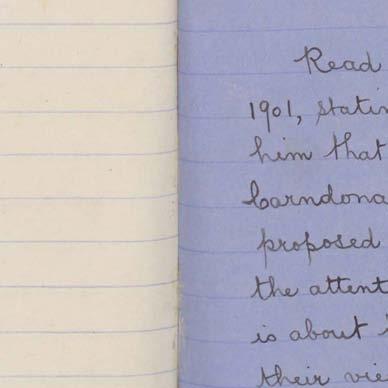 Read
1901, statin
him that
Carndona
proposed
the attent
is about
their vie